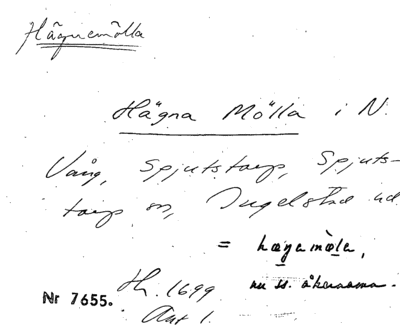 Hägnemölla
Hägna Mölla i N.
Vång, Spjutstorp, Spjuts-
torp sn, Ingelstad hd.
= hægamöla,
nu ss. åkernamn.
Hh. 1699
Akt 1.
Nr 7655.